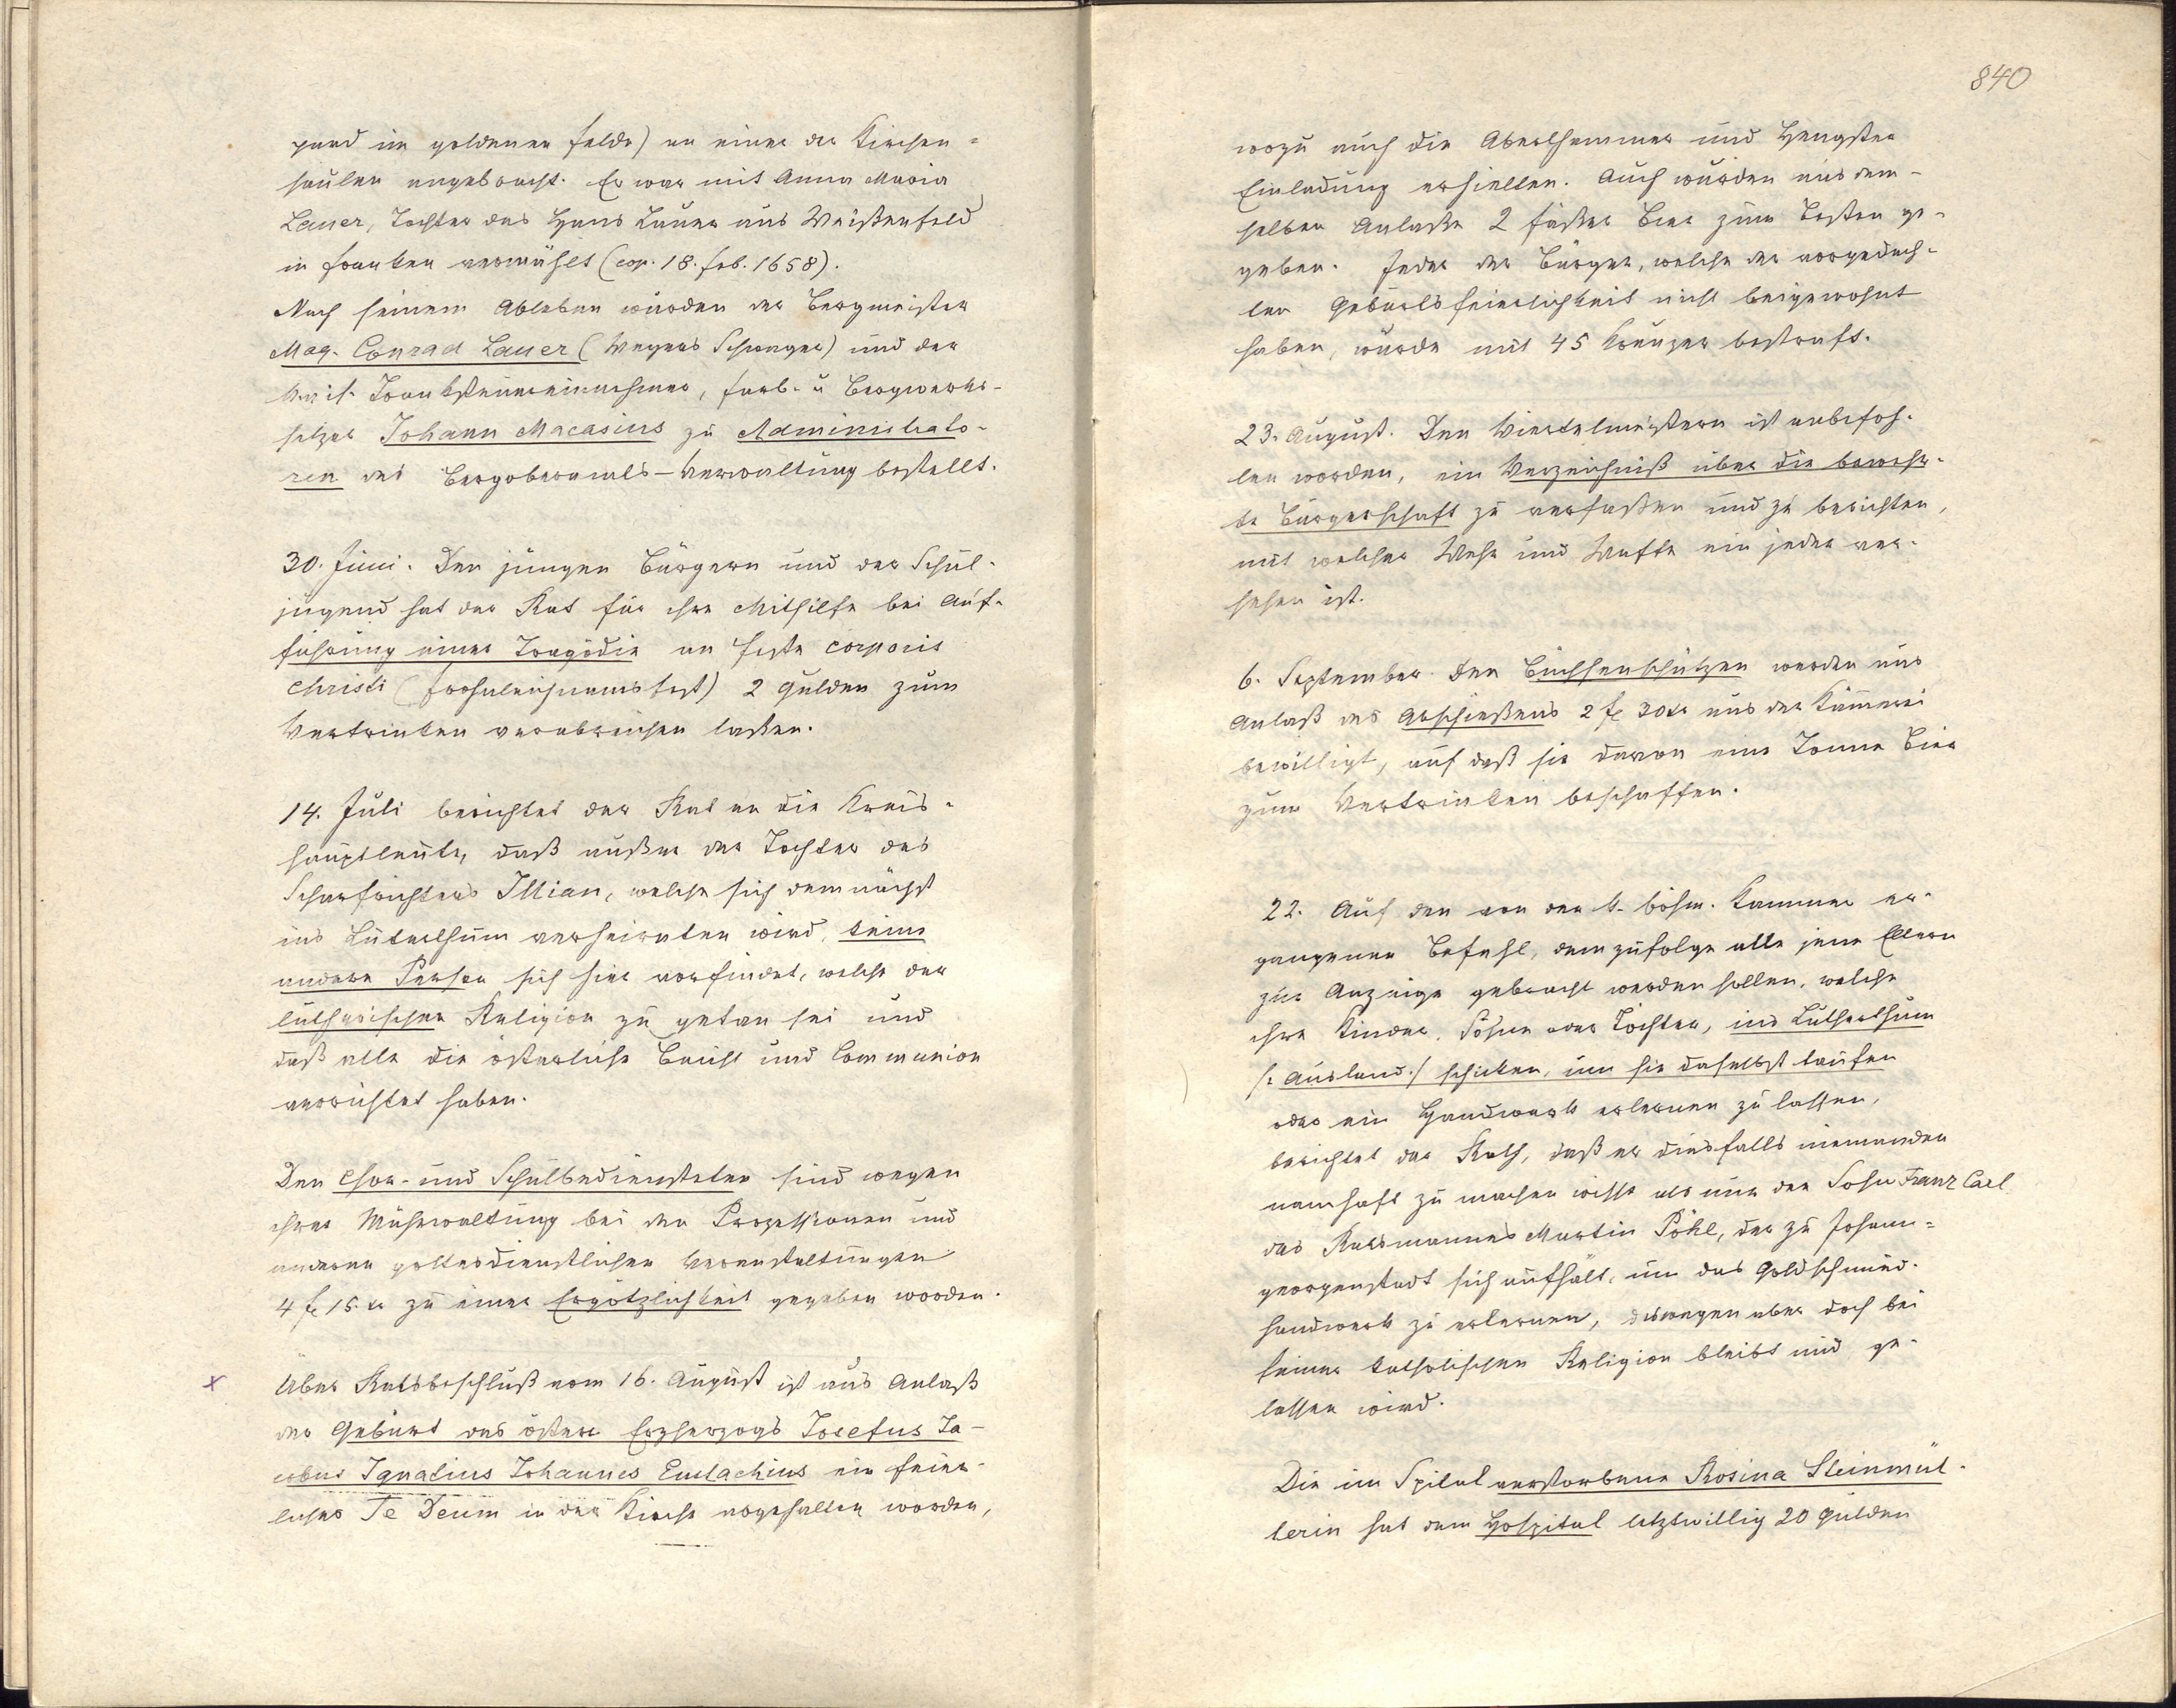 pard im goldenen Felde) an einer der Kirchen=
säulen angebracht. Er war mit Anna Maria
Lauer, Tochter des Hans Lauer aus Weißenfeld
in Franken vermählt (cop. 18. Feb. 1658).
Nach seinem Ableben wurden der Bergmeister
Mag. Conrad Lauer ( Schwager) und der
Tranksteuereinnehmer, Farb- u Bergwerks-
Johann Macasius zu Administrato-
ren der Bergoberamts-Verwaltung bestellt.
30. Juni. Den jungen Bürgern und der Schul-
jugend hat der Rat für ihre Mithilfe bei Auf-
führung einer Tragödie am Feste corporis
Christi (Frohnleichnamsfest) 2 Gulden zum
Vertrinken verabreichen laßen.
14. Juli berichtet der Rat an die Kreis-
hauptleute, daß außer der Tochter des
Scharfrichters Illian, welche sich demnächst
ins Lutertum verheiraten wird, keine
andere Person sich hier vorfindet, welche der
lutherischen Religion zu getan sei und
daß alle die österliche Beicht und Communion
verrichtet haben.
Den Chor- und Schulbediensteten sind wegen
ihrer Mühewaltung bei den Prozessionen und
anderen gottesdienstlichen Veranstaltungen
4 fl 15 kr zu einer Ergötzlichkeit gegeben worden.
x Über Ratsbeschluß vom 16. August ist aus Anlaß
der Geburt des österr Erzherzogs Josefus Ja-
cobus Ignatius Johannes Eustachius ein feier-
liches Te Deum in der Kirche abgehalten worden,
840
wozu auch die Aberthammer und Hengster
Einladung erhielten. Auch wurden aus dem-
selben Anlaße 2 Fäßer Bier zum Besten ge-
geben. Jeder der Bürger, welche der vorgedach-
ten Geburtsfeierlichkeit nicht beigewohnt
haben, wurde mit 45 Kreuzer bestraft.
23. August. Den Viertelmeistern ist anbefoh-
len worden, ein Verzeichniß über die bewehr-
te Bürgerschaft zu verfaßen und zu berichten,
mit welcher Wehr und Waffe ein jeder ver-
sehen ist.
6. September. Den Büchsenschützen werden aus
Anlaß des Abschießens 2 fl 30 kr aus der Kämmerei
bewilligt, auf daß sie davon eine Tonne Bier
zum Vertrinken beschaffen.
22. Auf den von der k. böhm. Kammer er-
gangenen Befehl, demzufolge alle jene Eltern
zur Anzeige gebracht werden sollen, welche
ihre Kinder, Söhne oder Töchter, ins Lutherthum
/: Ausland :/ schicken, um sie daselbst taufen
oder ein Handwerk erlernen zu lassen,
berichtet der Rath, daß er diesfalls niemanden
namhaft zu machen wisse als nur den Sohn Franz Carl
des Ratsmannes Martin Pöhl, der zu Johann=
georgenstadt sich aufhält, um das Goldschmied-
handwerk zu erlernen, deswegen aber doch bei
seiner katholischen Religion bleibt und ge-
lassen wird.
Die im Spital verstorbene Rosina Steinmül-
lerin hat dem Hospital letztwillig 20 Gulden